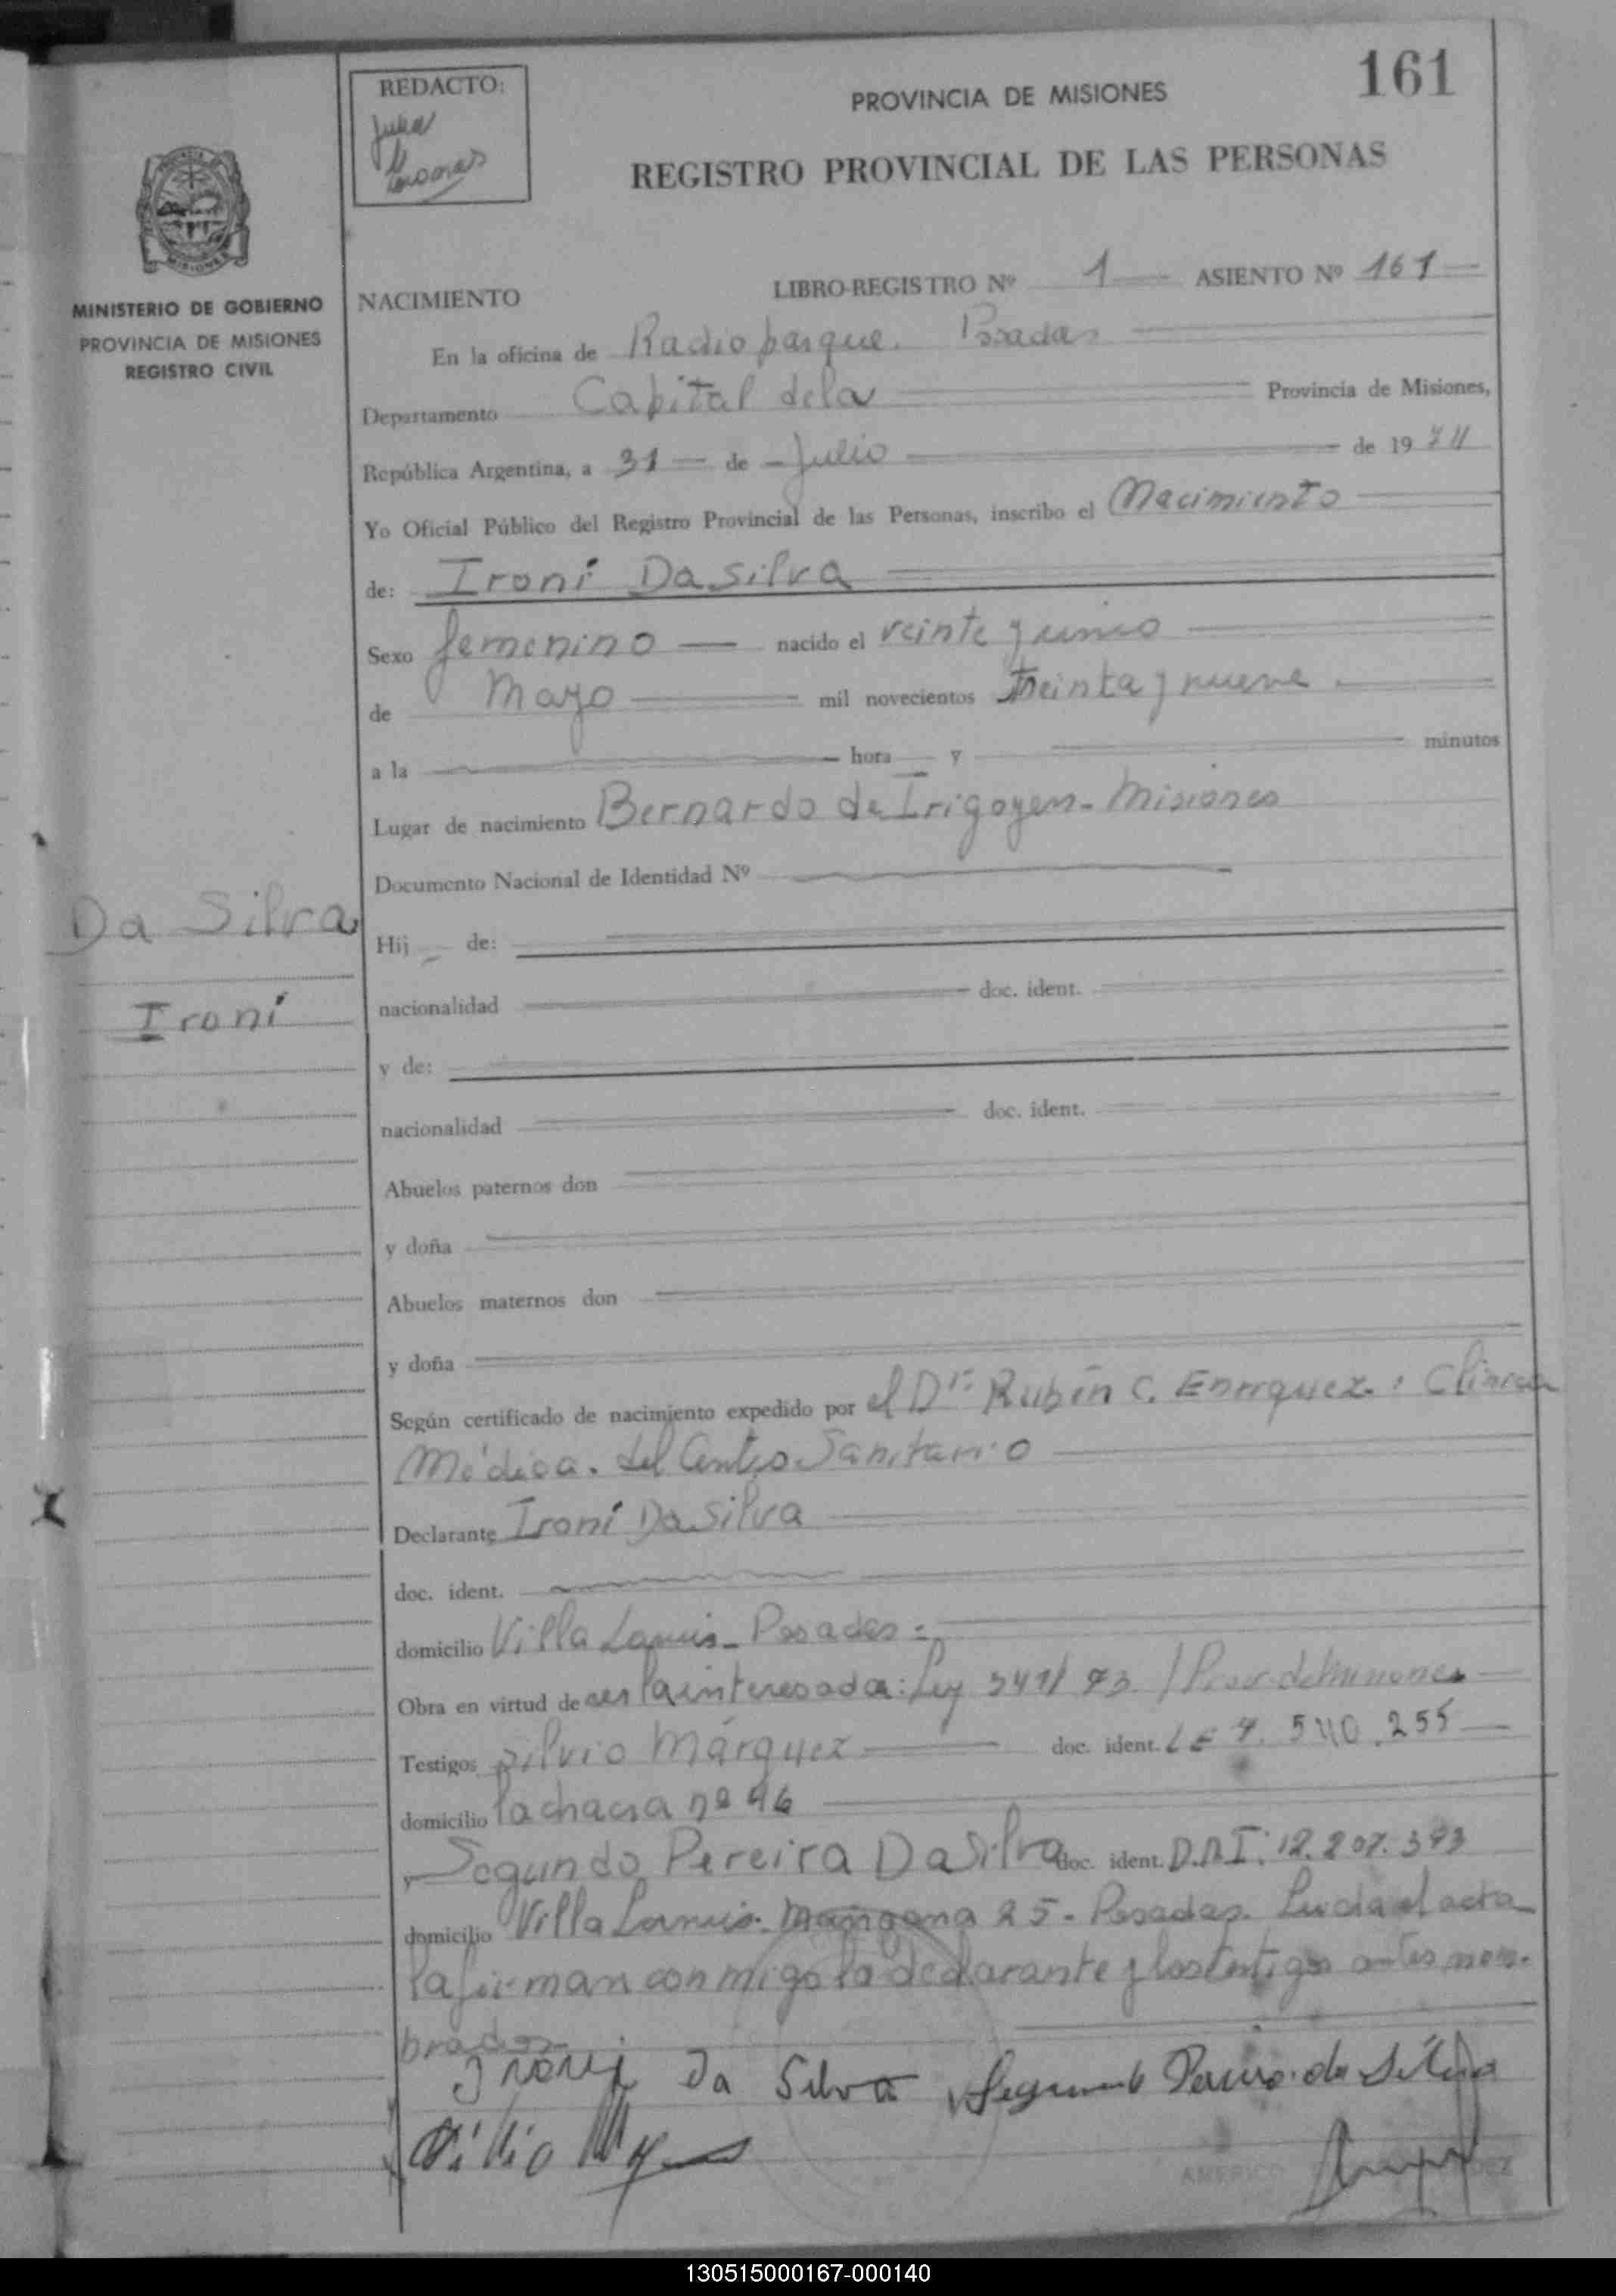 161
REDACTO:
PROVINCIA DE MISIONES
REGISTRO PROVINCIAL DE LAS PERSONAS
MINISTERIO DE GOBIERNO
PROVINCIA DE MISIONES
REGISTRO CIVIL
NACIMIENTO
LIBRO-REGISTRO Nº 1 ASIENTO Nº 161
En la oficina de Radio parque. Posadas
Departamento Capital dela Provincia de Misiones,
República Argentina, a 31 de Julio de 19
Yo Oficial Público del Registro Provincial de las Personas, inscribo el Nacimiento
de: Ironí Da Silva
Sexo femenino nacido el veinte y uno
de Mayo mil novecientos treinta y nueve
a la hora y minutos
Lugar de nacimiento Bernardo de Irigoyen - Misiones
Documento Nacional de Identidad Nº
Da Silva
Ironí
Hij de:
nacionalidad doc. ident.
y de:
nacionalidad doc. ident.
Abuelos paternos don
y doña
Abuelos maternos don
y doña
Según certificado de nacimiento expedido por el Dr. Rubén C. Enrrquez. : Clinica
Médica. del Centro Sanitario
Declarante Ironí Da Silva
doc. ident.
domicilio Villa Lanus - Posadas =
Obra en virtud de ser la interesada: Ley 341/73 / Prov. de Misiones
Testigos Silvio Márquez doc. ident. LE 7.540.255
domicilio la chacra nº 46
y Segundo Pereira Da Silva doc. ident. D.N.I: 12.207.373
domicilio Villa Lanus. Manzana 25 - Posadas. Leida el acta
la firman con migo la declarante y los testigos antes nom-
brados
Irony Da Silva Segundo Pereira da Silva
Silvio
AMERICO
130515000167-000140